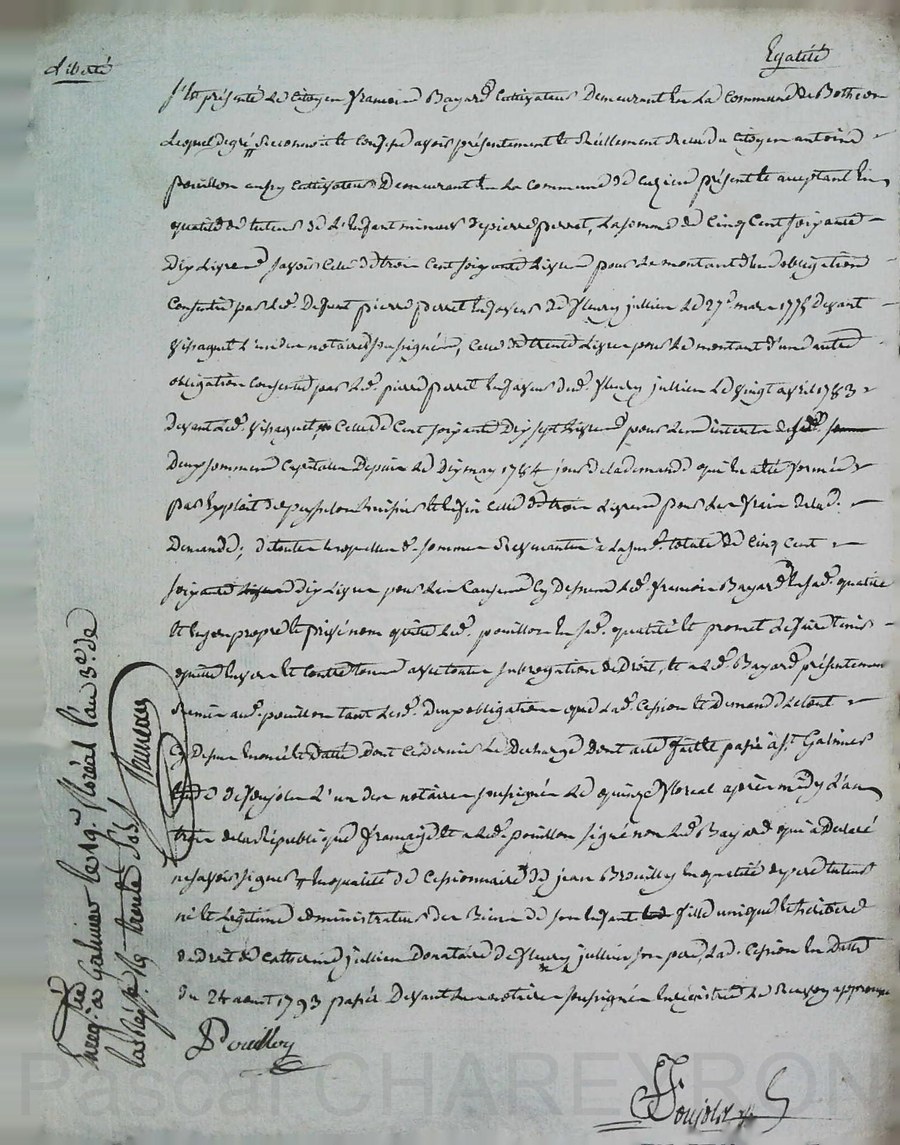 Liberté
Egalité
S'est présenté le Citoyen francois Bayard Cultivateur Demeurant En La Commune de Botheon
Lequel de gré Reconnoit et Confesse avoir présentement et Réellement Recu du Citoyen antoine
pouillon aussy Cultivateur Demeurant En La Commune de présent et acceptant En
qualité de tuteur de L'Enfant mineur de pierre perret, La somme de Cinq Cent soixante
Dix Livres savoir Celle de trois Cent soixante Livres pour Le montant d'une obligation
Consentie par Led. Defunt pierre perret En faveur de fleury jullien Le 27e mars 1775 Devant
L'un des notaires soussignés, Celle de trente Livres pour Le montant d'une autre
obligation Consentie par Led. pierre perret En faveur dud. fleury jullien Le vingt avril 1783
Devant Led. Celle de Cent soixante Dix sept Livres pour Les interets desd.
Deux sommes Capitales Depuis Le Dix may 1784 jour de la demande qui En a été formée
par Exploit de huissier et Enfin Celle de trois Livres pour Les frais de lad.
Demande; de toutes Lesquelles d. sommes Revenantes à La susd. totale de Cinq Cent
soixante dix Livres pour Les Causes Cy Dessus Led. francois Bayard En sad. qualité
et En son propre et privé nom quitte Led. pouillon En sad. qualité et promet Le faire tenir
quitte Envers et Contre tous avec toute subrogation de Droit, et a Led. Bayard présentement
Remis aud. pouillon tant Lesd. Deux obligations que Lad. Cession et Demande Le tout
Cy Dessus Enoncé et Daté Dont Ce dernier Le Decharge Dont acte fait et passé à St. Galmier
Etude de Soujolas L'un des notaires soussignés Le quinze floreal après midy L'an
trois de la République francaise et a Led. pouillon signé non Led. Bayard qui a Declaré
ne savoir signer En qualité de Cessionnaire de jean Brouilles En qualité de pere tuteur
né et Légitime administrateur des Biens de son Enfant fille unique et heritiere
de Droit de Catherine jullien Donataire de fleury jullien son pere, Lad. Cession En Date
du 24 aout 1793 passée Devant Les notaires soussignés Enregistrée Le Renvoy approuvé
Pouillon
Soujolas
Enregistré a Galmier le 19e. floréal l'an 3e. de
la Rép. trente sols
Pascal CHAREYRON